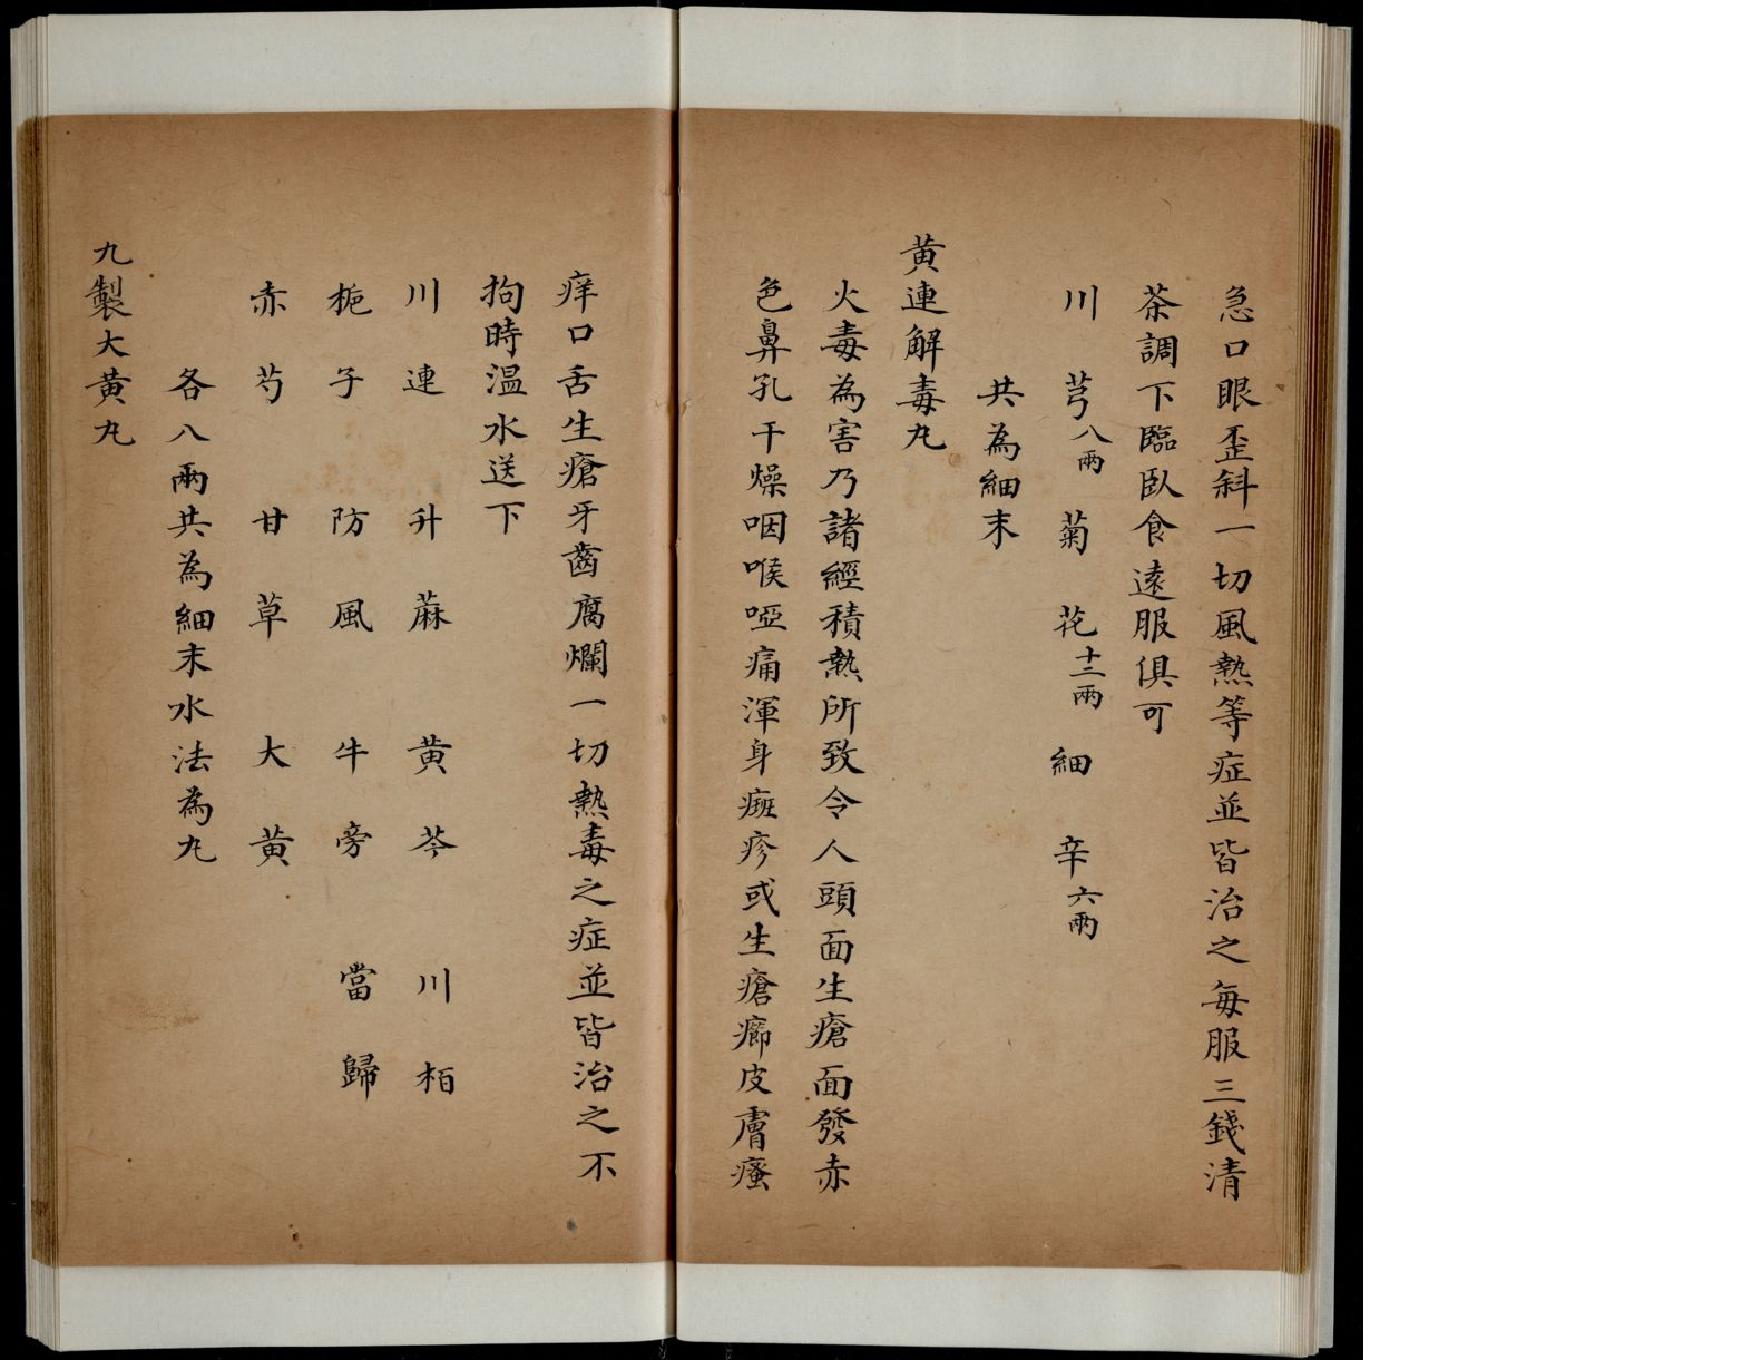 急口眼歪斜一切風熱等症並皆治之每服三錢清
茶調下臨臥食遠服俱可
川芎八兩 菊花十二兩 細辛六兩
共為細末
黃連解毒丸
火毒為害乃諸經積熱所致令人頭面生瘡面發赤
色鼻孔干燥咽喉啞痛渾身癍疹或生瘡癤皮膚瘙
痒口舌生瘡牙齒腐爛一切熱毒之症並皆治之不
拘時溫水送下
川連 升蔴 黃芩 川栢
梔子 防風 牛旁 當歸
赤芍 甘草 大黃
各八兩共為細末水法為丸
九製大黃丸